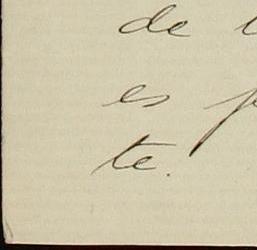 de
es
te.